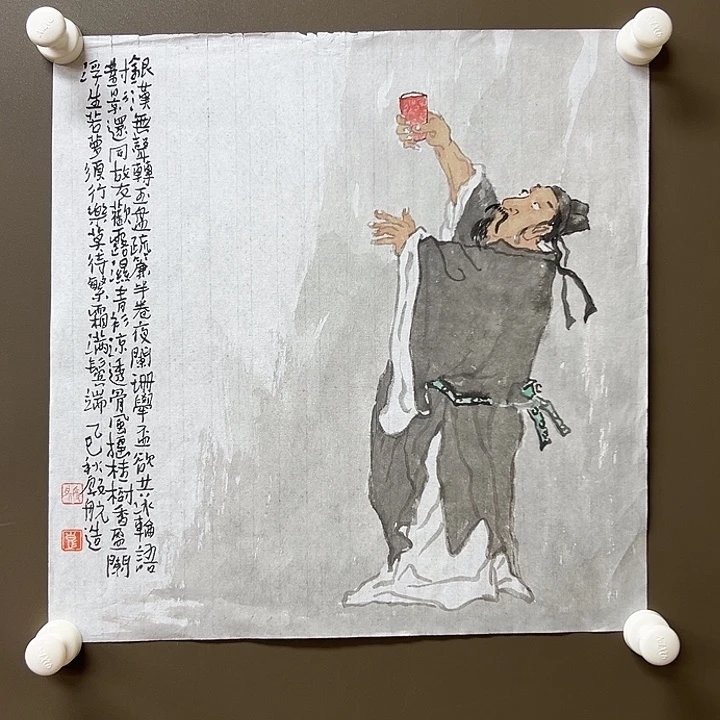 銀漢無聲轉玉盤疏簾半卷夜闌珊舉盃欲共冰輪語
對影還同故友歡露濕青衫涼透骨風搖桂樹香盈闌
浮生若夢須行樂莫待繁霜滿鬢端 乙巳秋 航造